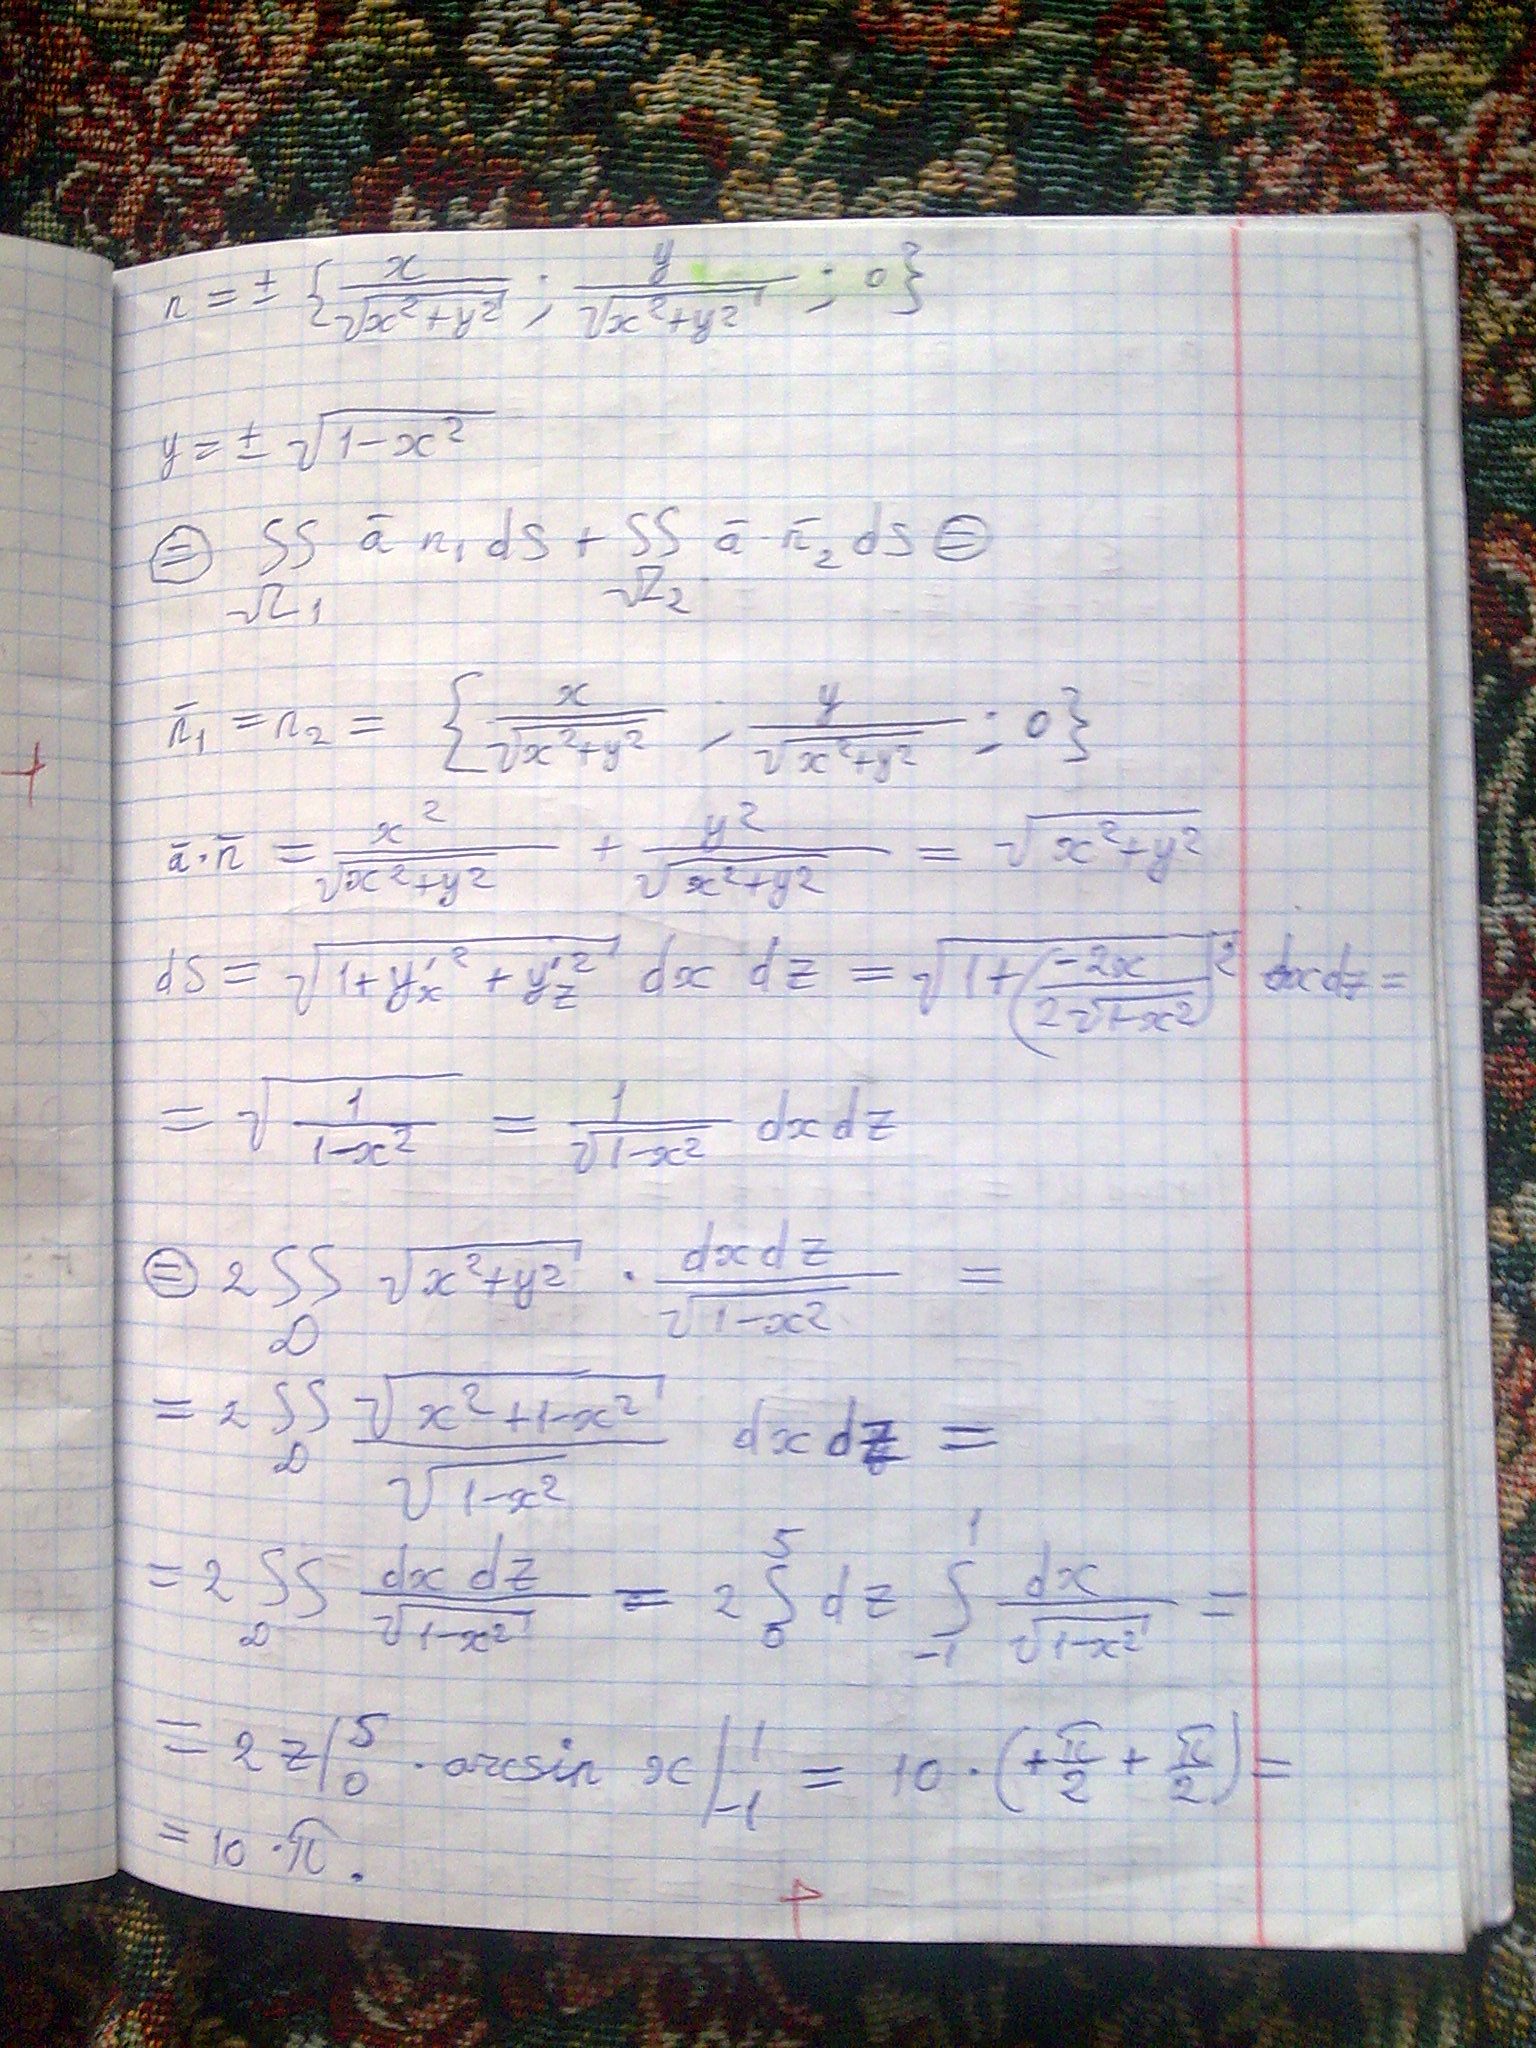 n = ± { x/√(x²+y²) ; y/√(x²+y²) ; 0 }
y = ± √(1-x²)
⊜ ∬_Ω₁ ā n₁ dS + ∬_Ω₂ ā · n̄₂ dS ⊜
n̄₁ = n₂ = { x/√(x²+y²) ; y/√(x²+y²) ; 0 }
ā · n̄ = x²/√(x²+y²) + y²/√(x²+y²) = √(x²+y²)
dS = √(1+y'ₓ² + y'_z²) dx dz = √(1+(-2x/(2√(1-x²)))²) dx dz =
= √(1/(1-x²)) = 1/√(1-x²) dx dz
⊜ 2 ∬_D √(x²+y²) · dx dz/√(1-x²) =
= 2 ∬_D √(x²+1-x²)/√(1-x²) dx dz =
= 2 ∬_D dx dz/√(1-x²) = 2 ∫₀⁵ dz ∫₋₁¹ dx/√(1-x²) =
= 2 z|₀⁵ · arcsin x|₋₁¹ = 10 · (+π/2 + π/2) =
= 10 · π.